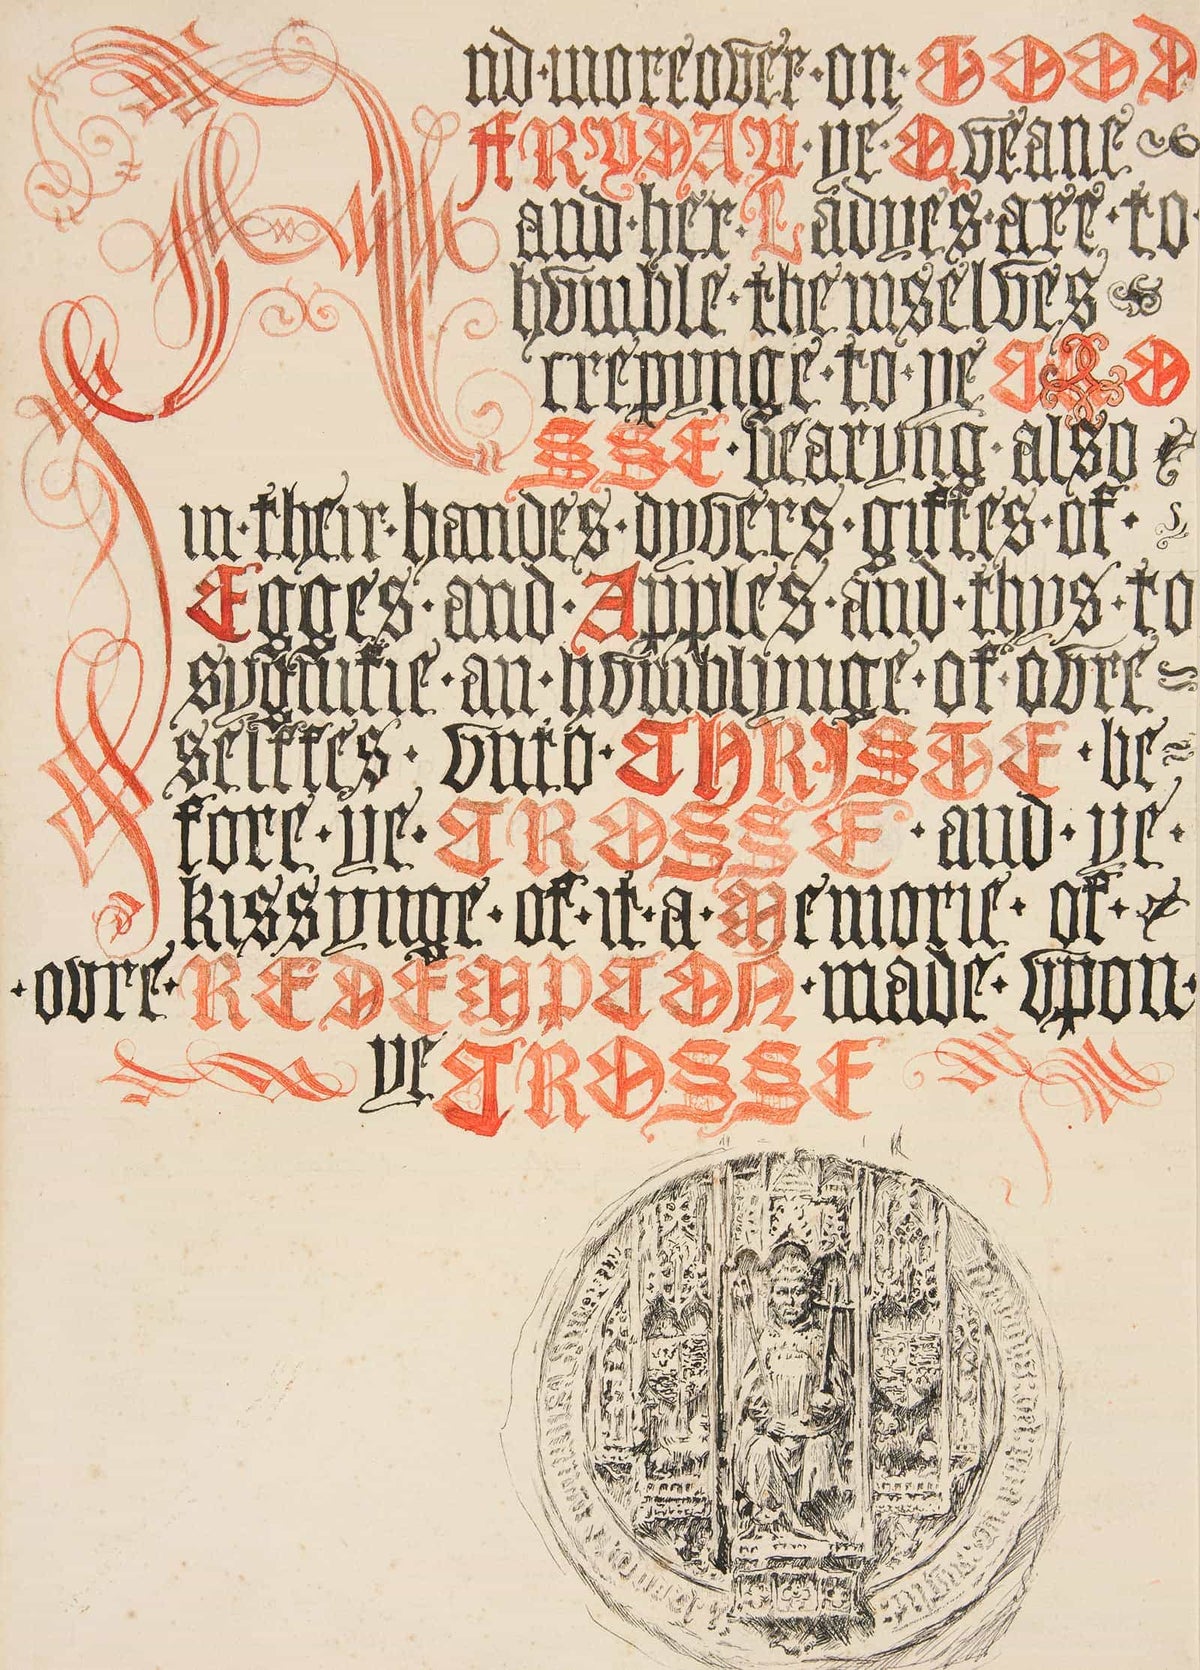 And·moreover·on·GOOD
FRYDAY·ye·Qveane
and·her·Ladyes·are·to
hvmble·themselves
crepynge·to·ye CRO
SSE·bearyng·also
in·their·handes·dyvers·giftes·of·
Egges·and·Apples·and·thys·to
sygnifie·an·hvmblynge·of·ovre
selffes·vnto·CHRISTE·be-
fore·ye·CROSSE·and·ye·
kissynge·of·it·a·Memorie·of·
·ovre·REDEMPCION·made·vpon·
ye CROSSE